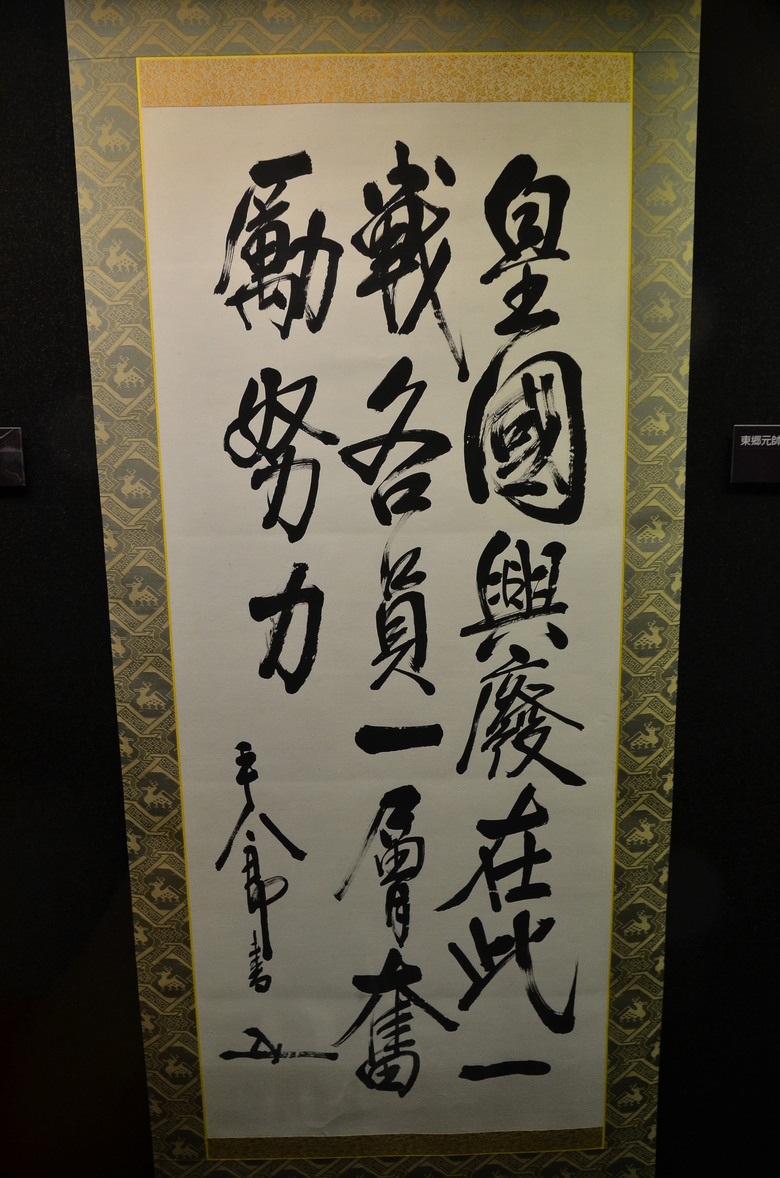 皇國興廢在此一
戰各員一層奮
勵努力
平八郎書
東郷元帥